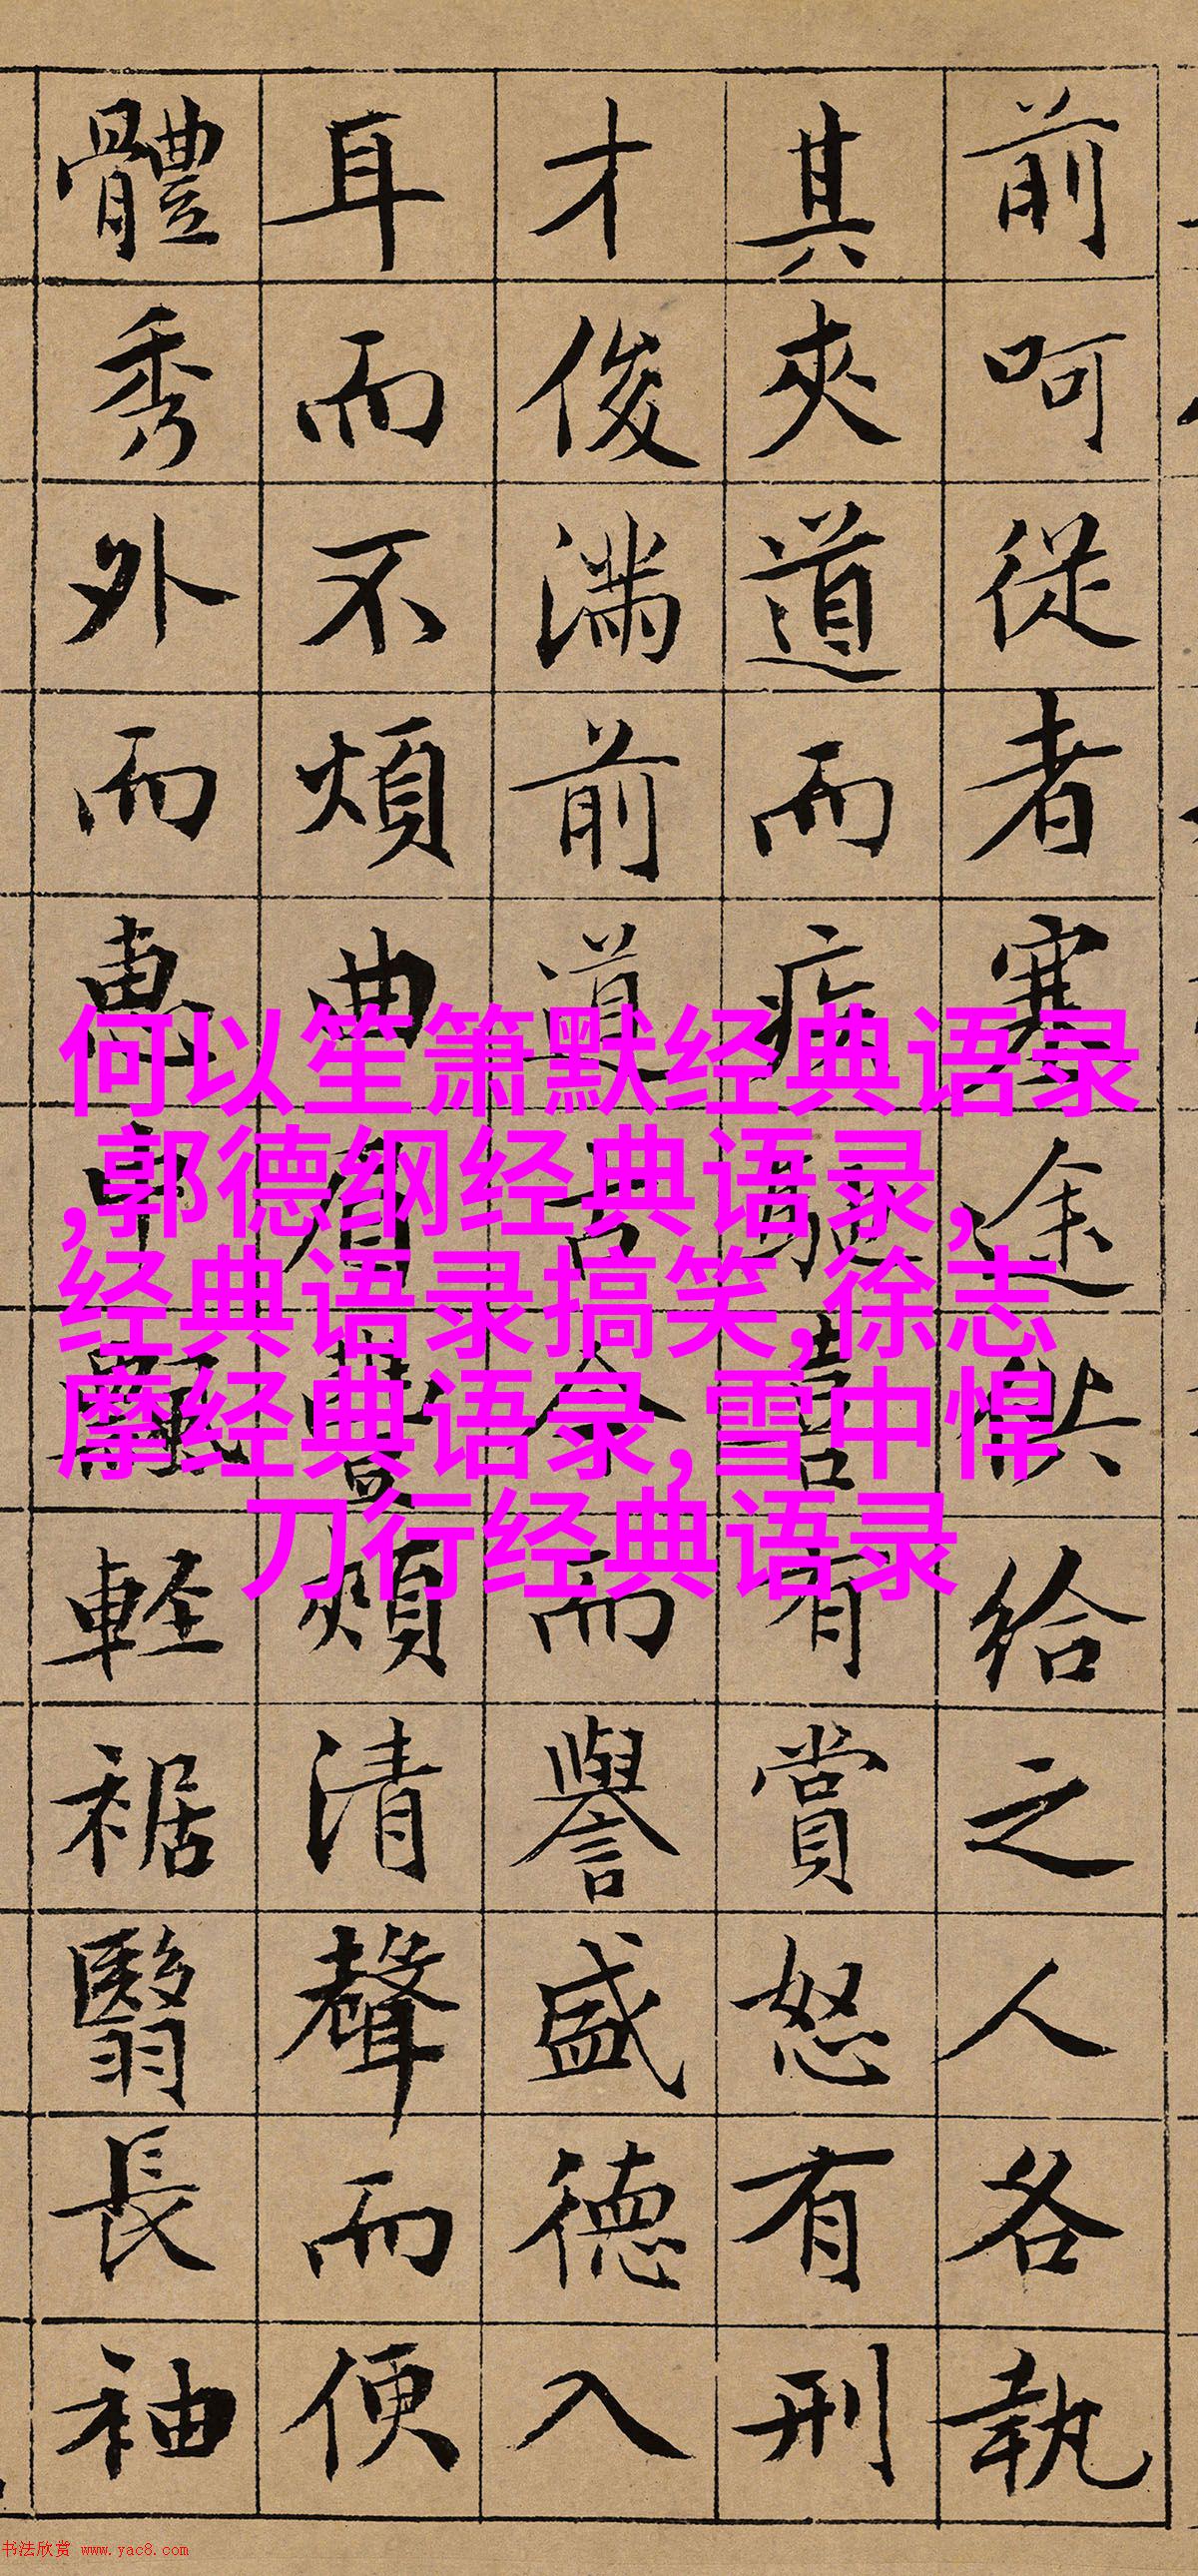 前呵從者塞途供給之人各執
其夾道而疾馳喜有賞怒有刑
才俊滿前道古今而譽盛德入
耳而不煩曲眉豐頰清聲而便
體秀外而惠中飄輕裾翳長袖
何以笙箫默经典语录
,郭德纲经典语录,
经典语录搞笑,徐志
摩经典语录,雪中悍
刀行经典语录
书法欣赏 www.yac8.com